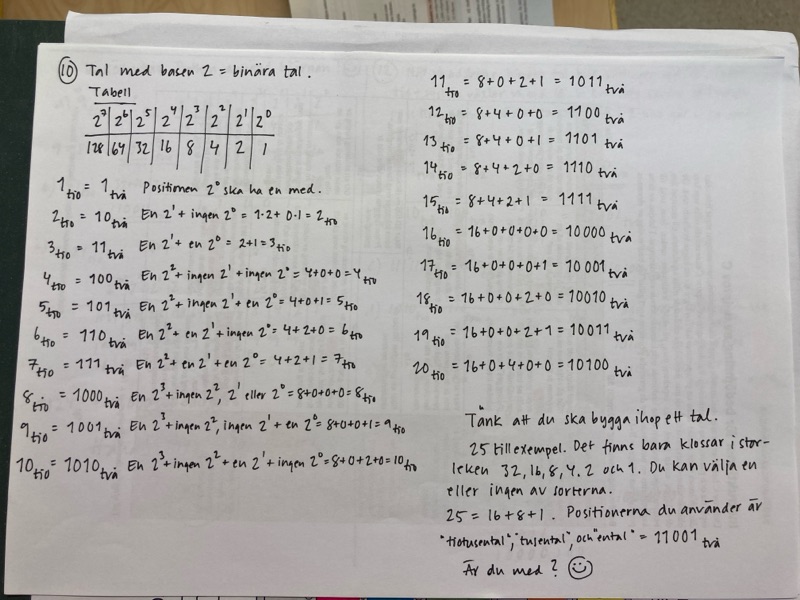 10 Tal med basen 2 = binära tal.
Tabell
2⁷ 2⁶ 2⁵ 2⁴ 2³ 2² 2¹ 2⁰
128 64 32 16 8 4 2 1
1tio = 1två Positionen 2⁰ ska ha en med.
2tio = 10två En 2¹ + ingen 2⁰ = 1·2 + 0·1 = 2tio
3tio = 11två En 2¹ + en 2⁰ = 2+1 = 3tio
4tio = 100två En 2² + ingen 2¹ + ingen 2⁰ = 4+0+0 = 4tio
5tio = 101två En 2² + ingen 2¹ + en 2⁰ = 4+0+1 = 5tio
6tio = 110två En 2² + en 2¹ + ingen 2⁰ = 4+2+0 = 6tio
7tio = 111två En 2² + en 2¹ + en 2⁰ = 4+2+1 = 7tio
8tio = 1000två En 2³ + ingen 2², 2¹ eller 2⁰ = 8+0+0+0 = 8tio
9tio = 1001två En 2³ + ingen 2², ingen 2¹ + en 2⁰ = 8+0+0+1 = 9tio
10tio = 1010två En 2³ + ingen 2² + en 2¹ + ingen 2⁰ = 8+0+2+0 = 10tio
11tio = 8+0+2+1 = 1011två
12tio = 8+4+0+0 = 1100två
13tio = 8+4+0+1 = 1101två
14tio = 8+4+2+0 = 1110två
15tio = 8+4+2+1 = 1111två
16tio = 16+0+0+0+0 = 10000två
17tio = 16+0+0+0+1 = 10001två
18tio = 16+0+0+2+0 = 10010två
19tio = 16+0+0+2+1 = 10011två
20tio = 16+0+4+0+0 = 10100två
Tänk att du ska bygga ihop ett tal.
25 till exempel. Det finns bara klossar i stor-
leken 32, 16, 8, 4, 2 och 1. Du kan välja en
eller ingen av sorterna.
25 = 16 + 8 + 1. Positionerna du använder är
"tiotusental", "tusental", och "ental" = 11001två
Är du med? ☺